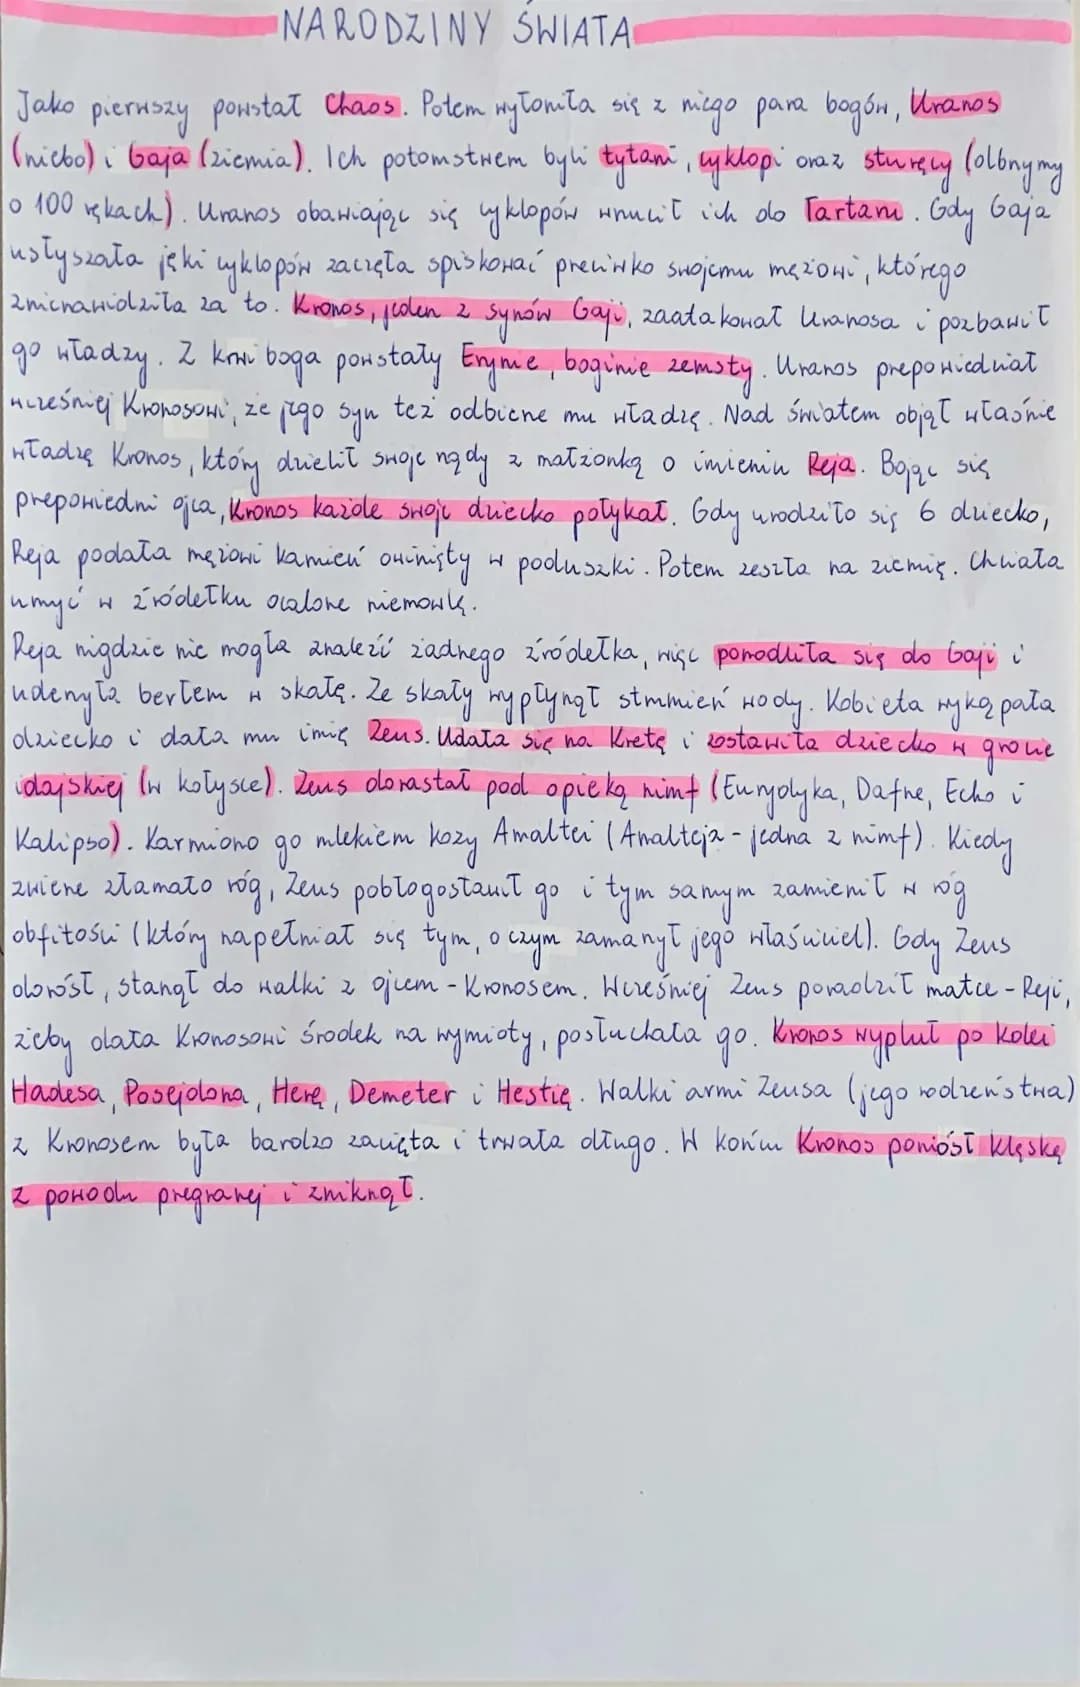 NARODZINY ŚWIATA
Jako pierwszy powstał Chaos. Potem wyłoniła się z niego para bogów, Uranos
(niebo) i Gaja (ziemia). Ich potomstwem byli tytani, cyklopi oraz sturęcy (olbrzymy
o 100 rękach). Uranos obawiając się cyklopów wrzucił ich do Tartaru. Gdy Gaja
usłyszała jęki cyklopów zaczęła spiskować przeciwko swojemu mężowi, którego
znienawidziła za to. Kronos, jeden z synów Gaji, zaatakował Uranosa i pozbawił
go władzy. Z krwi boga powstały Erynie, boginie zemsty. Uranos przepowiedział
wcześniej Kronosowi, że jego syn też odbierze mu władzę. Nad światem objął właśnie
władzę Kronos, który dzielił swoje rządy z małżonką o imieniu Reja. Bojąc się
przepowiedni ojca, Kronos każde swoje dziecko połykał. Gdy urodziło się 6 dziecko,
Reja podała mężowi kamień owinięty w poduszki. Potem zeszła na ziemię. Chciała
umyć w źródełku ocalone niemowlę.
Reja nigdzie nie mogła znaleźć żadnego źródełka, więc pomodliła się do Gaji i
uderzyła berłem w skałę. Ze skały wypłynął strumień wody. Kobieta wykąpała
dziecko i dała mu imię Zeus. Udała się na Kretę i zostawiła dziecko w grocie
idajskiej (w kołysce). Zeus dorastał pod opieką nimf (Eurydyka, Dafne, Echo i
Kalipso). Karmiono go mlekiem kozy Amaltei (Amalteja - jedna z nimf). Kiedy
zwierzę złamało róg, Zeus pobłogosławił go i tym samym zamienił w róg
obfitości (który napełniał się tym, o czym zamarzył jego właściciel). Gdy Zeus
dorósł, stanął do walki z ojcem - Kronosem. Wcześniej Zeus poradził matce - Reji,
żeby dała Kronosowi środek na wymioty, posłuchała go. Kronos wypluł po kolei
Hadesa, Posejdona, Herę, Demeter i Hestię. Walki armi Zeusa (jego rodzeństwa)
z Kronosem była bardzo zacięta i trwała długo. W końcu Kronos poniósł klęskę
z powodu przegranej i zniknął.